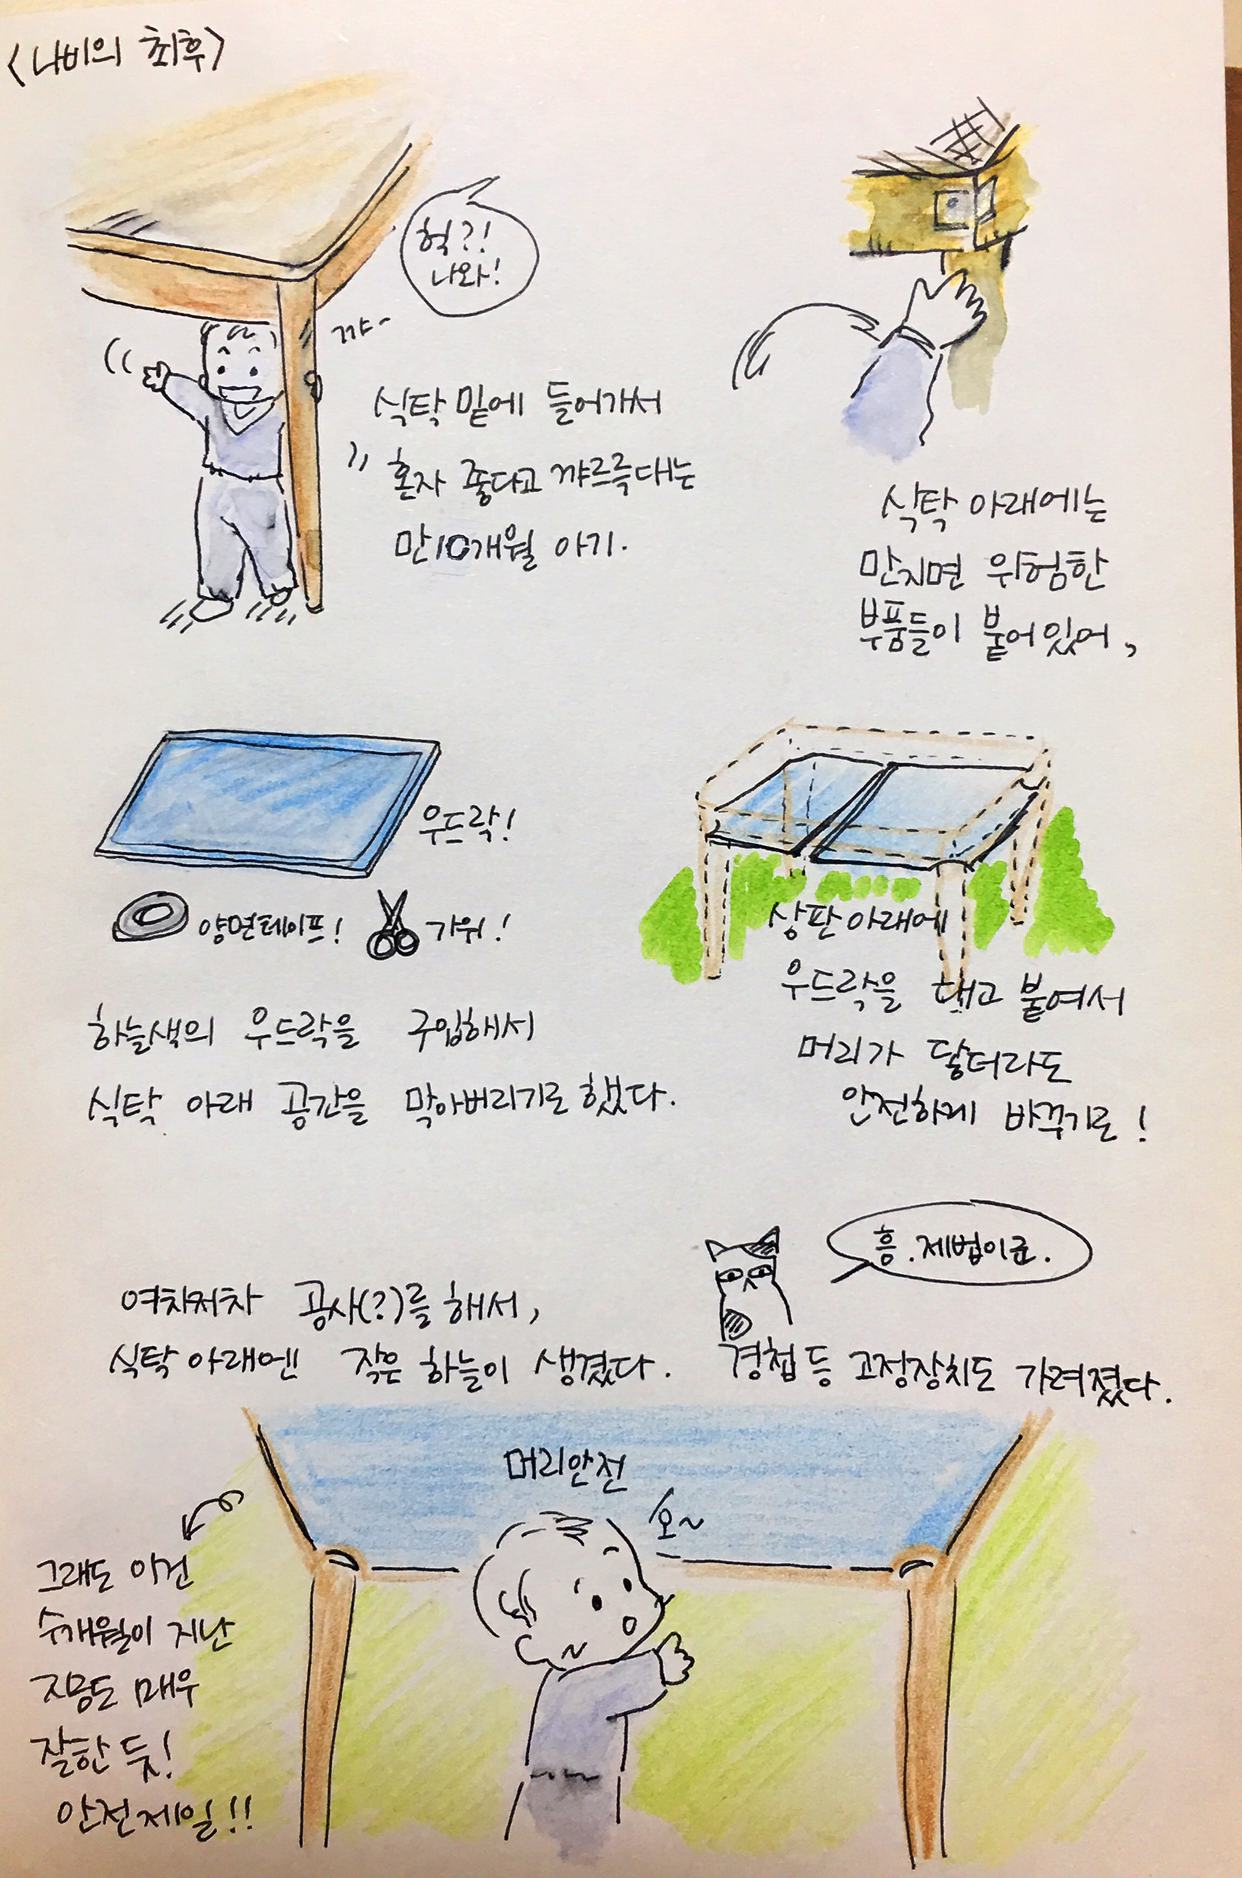 <나비의 최후>
헉?!
나와!
꺄~
식탁 밑에 들어가서
혼자 좋다고 꺄르륵대는
만10개월 아기.
식탁 아래에는
만지면 위험한
부품들이 붙어있어,
우드락!
양면테이프!
가위!
하늘색의 우드락을 구입해서
식탁 아래 공간을 막아버리기로 했다.
상판 아래에
우드락을 대고 붙여서
머리가 닿더라도
안전하게 바꾸기로!
흥. 제법이군.
여차저차 공사(?)를 해서,
식탁 아래엔 작은 하늘이 생겼다.
경첩 등 고정장치도 가려졌다.
머리안전
오~
그래도 이건
수개월이 지난
지금도 매우
잘한 듯!
안전제일!!